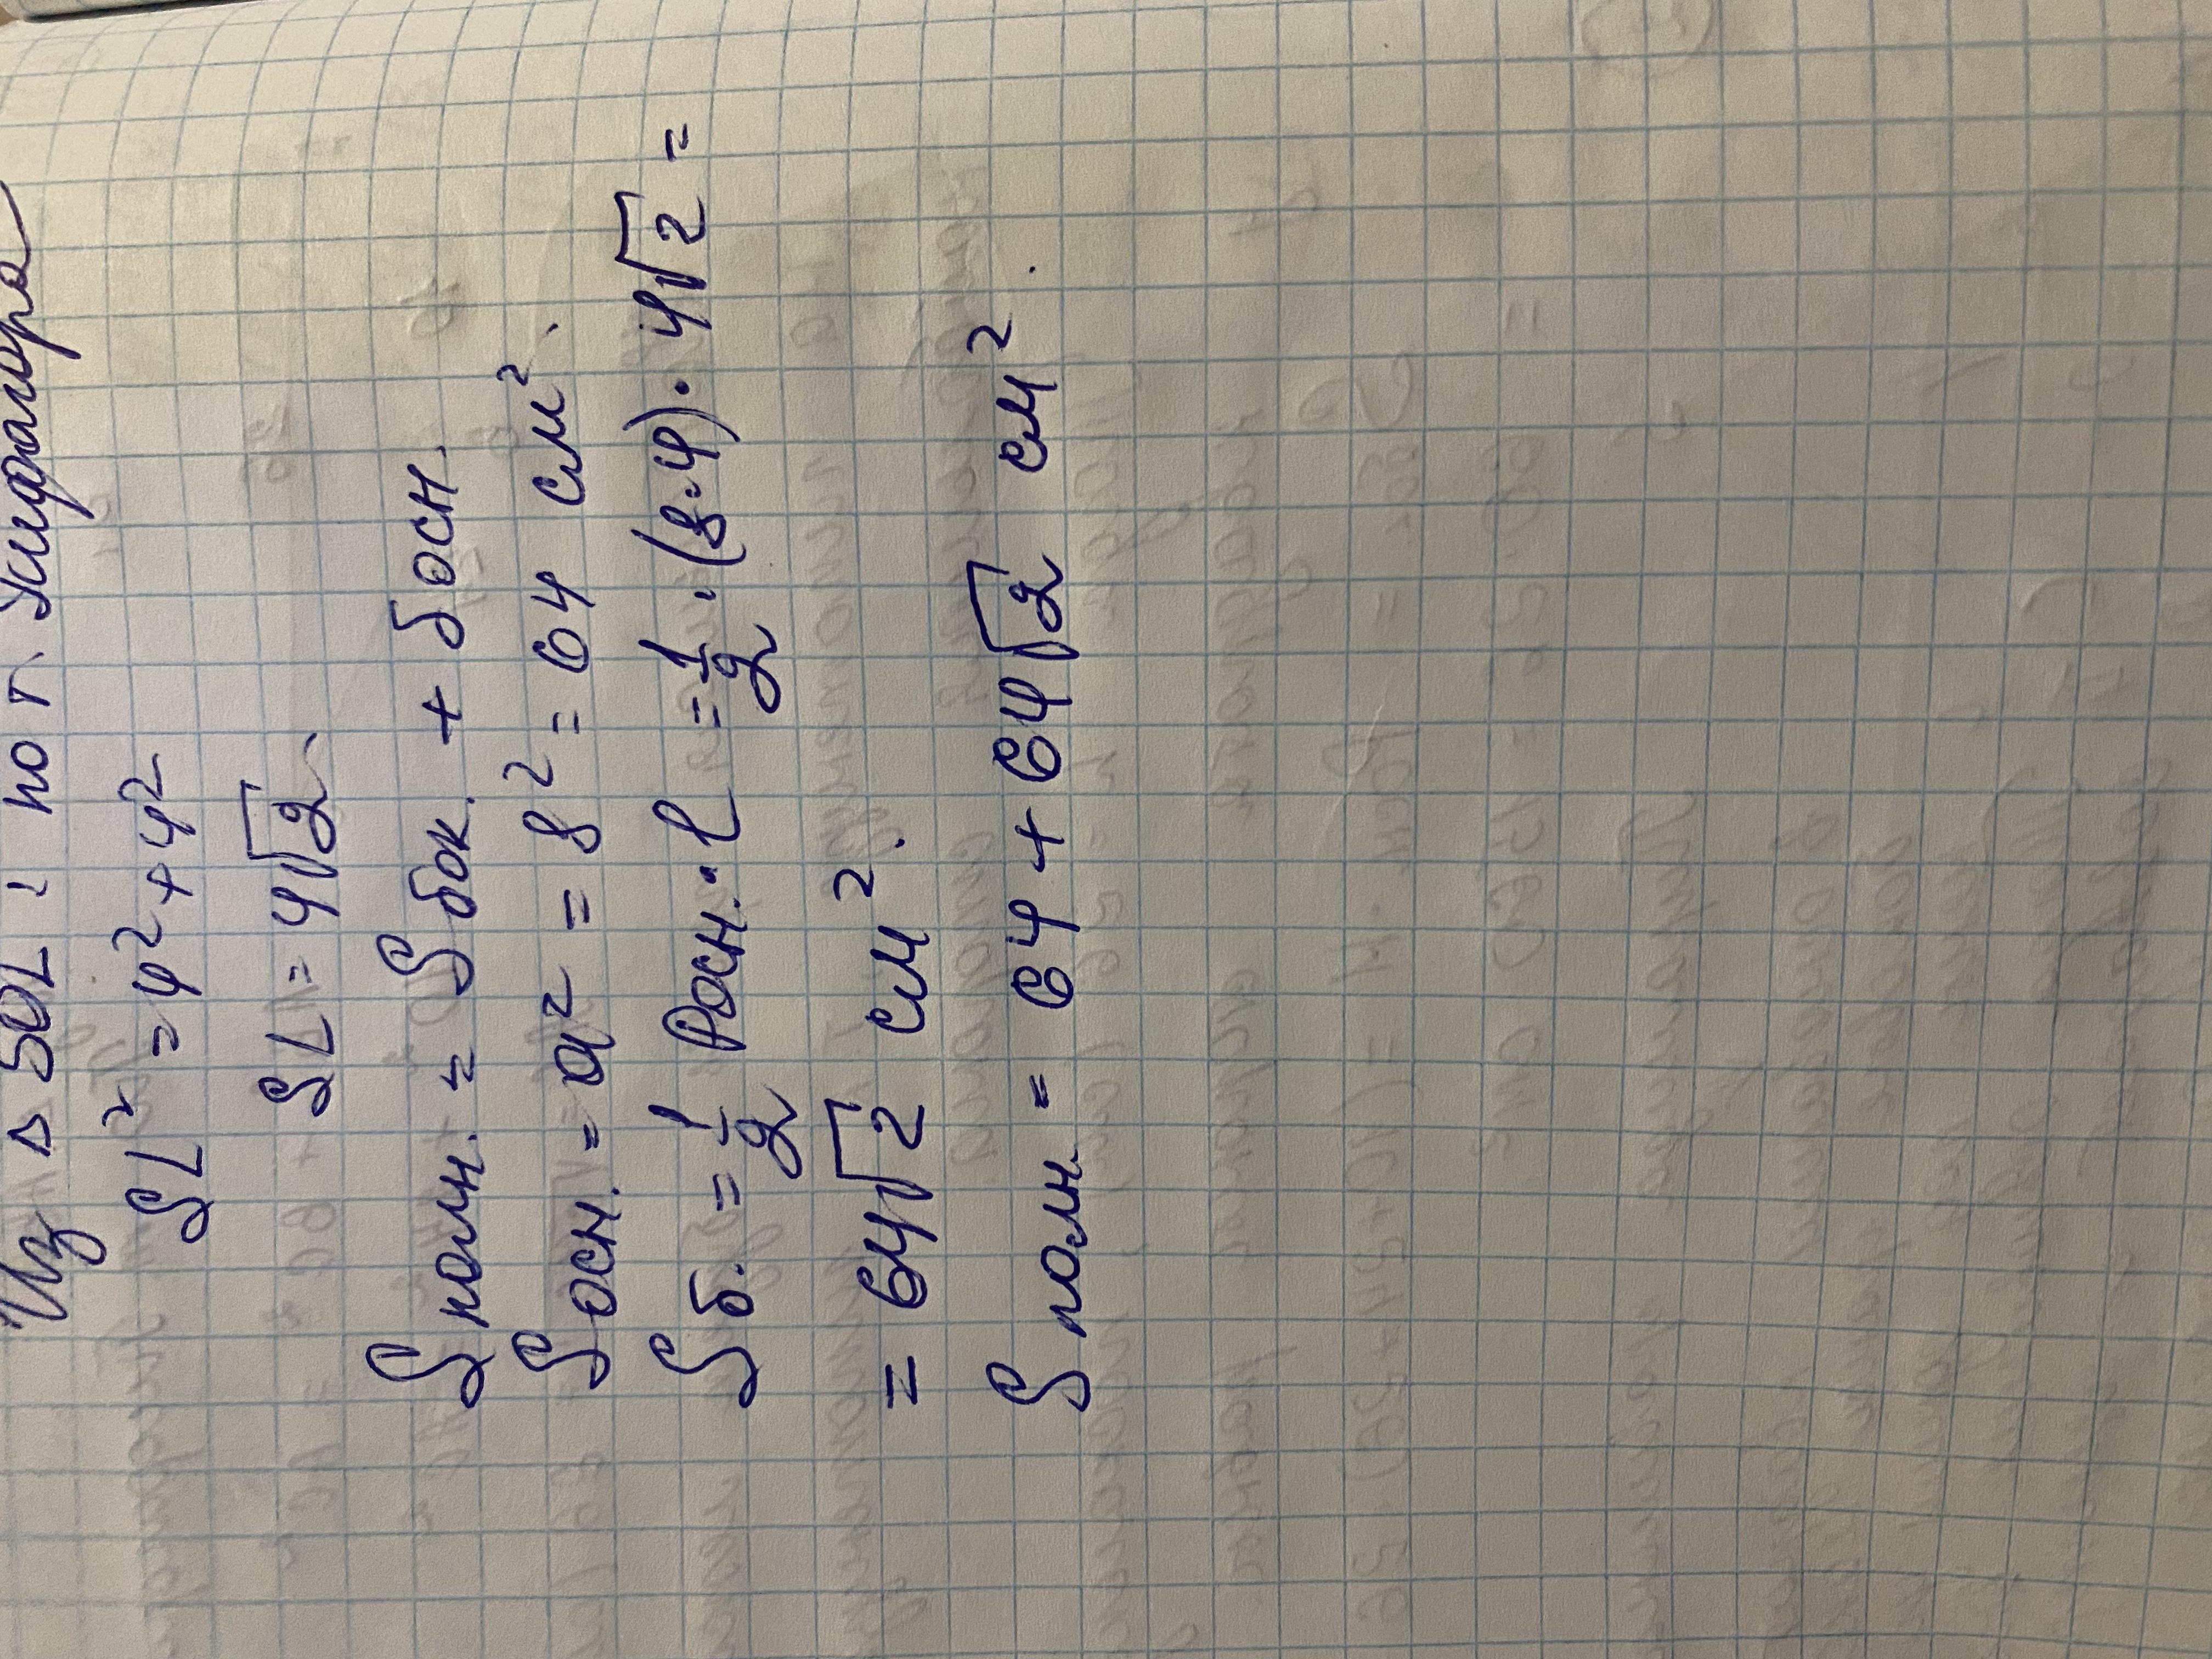 Из △ SOL: по т. Пифагора
SL² = 4² + 4²
SL = 4√2
Sполн. = Sбок. + Sосн.
Sосн. = a² = 8² = 64 см².
Sб. = 1/2 Pосн. · l = 1/2 · (8·4) · 4√2 =
= 64√2 см².
Sполн. = 64 + 64√2 см².